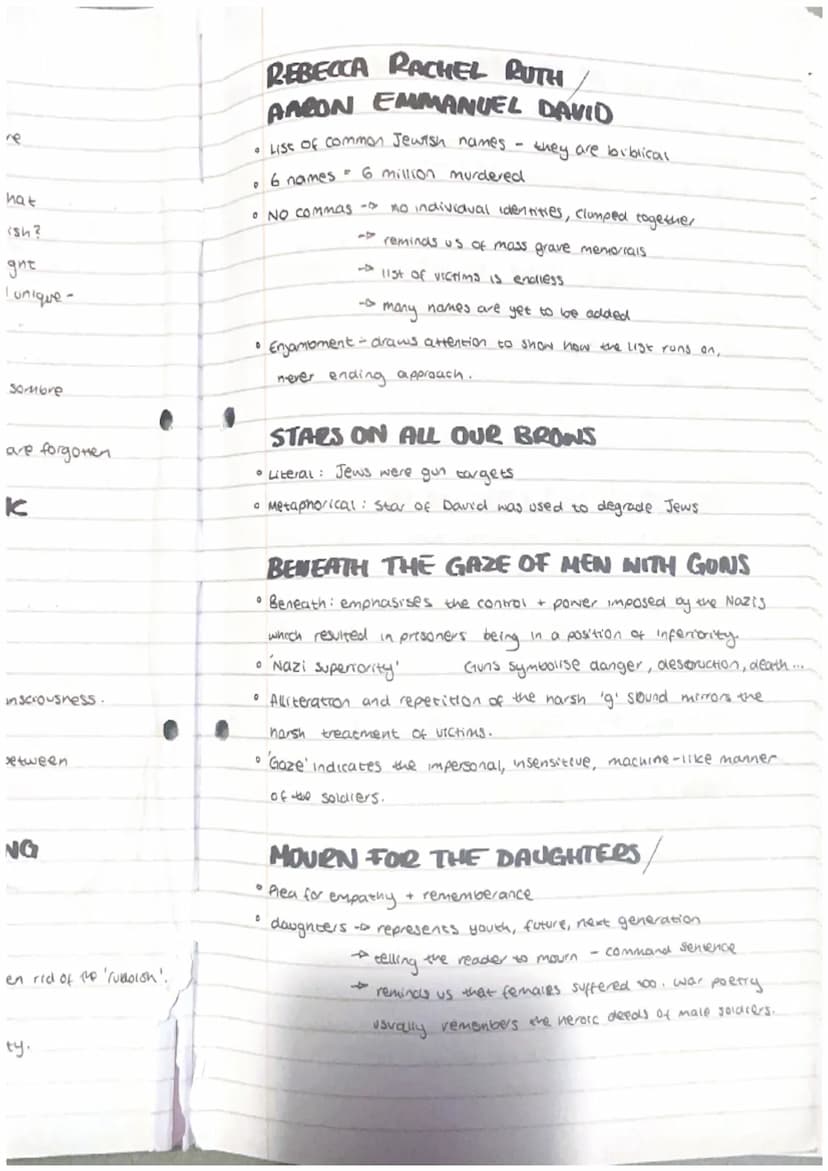 re
hat
ish?
ght
unique -
sombre
are forgotten
K
nsciousness.
between
NG
en rid of the 'rubbish'.
ty.
REBECCA RACHEL RUTH /
AARON EMMANUEL DAVID
• List of common Jewish names - they are biblical
• 6 names = 6 million murdered
• No commas -> no individual identities, clumped together
-> reminds us of mass grave memorials
-> list of victims is endless
-> many names are yet to be added
• Enjambment - draws attention to show how the list runs on,
never ending approach.
STARS ON ALL OUR BROWS
• Literal: Jews were gun targets
• Metaphorical: Star of David was used to degrade Jews
BENEATH THE GAZE OF MEN WITH GUNS
• Beneath: emphasises the control + power imposed by the Nazis
which resulted in prisoners being in a position of inferiority.
• 'Nazi superiority' Guns symbolise danger, destruction, death...
• Alliteration and repetition of the harsh 'g' sound mirrors the
harsh treatment of victims.
• 'Gaze' indicates the impersonal, insensitive, machine-like manner
of the soldiers.
MOURN FOR THE DAUGHTERS /
• Plea for empathy + rememberance
• daughters -> represents youth, future, next generation
-> telling the reader to mourn - command sentence
-> reminds us that females suffered too. War poetry
usually remembers the heroic deeds of male soldiers.